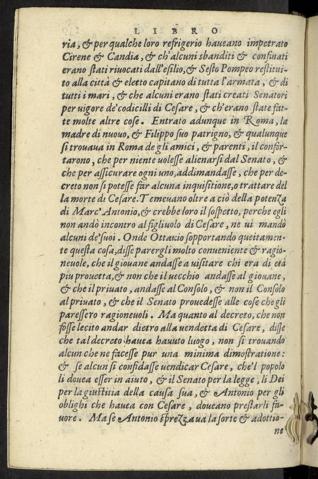 LIBRO
ria, & per qualche loro refrigerio haueano impetrato
Cirene & Candia, & ch'alcuni sbanditi & confinati
erano stati riuocati dall'esilio, & Sesto Pompeo restitui-
to alla città & eletto capitano di tutta l'armata, & di
tutti i mari, & che alcuni erano stati creati Senatori
per uigore de' codicilli di Cesare, & ch'erano state fat-
te molte altre cose. Entrato adunque in Roma, la
madre di nuouo, & Filippo suo patrigno, & qualunque
si trouaua in Roma de gli amici, & parenti, il confor-
tarono, che per niente uolesse alienarsi dal Senato, &
che per assicurare ogni uno, addimandasse, che per de-
creto non si potesse far alcuna inquisitione, o trattare del
la morte di Cesare. Temeuano oltre a ciò della potenza
di Marc'Antonio, & crebbe loro il sospetto, perche egli
non andò incontro al figliuolo di Cesare, ne ui mandò
alcuni de' suoi. Onde Ottauio sopportando quietamen-
te questa cosa, disse parergli molto conueniente & ragio-
neuole, che il giouane andasse a uisitare chi era di età
piu prouetta, & non che il uecchio andasse al giouane,
& che il priuato, andasse al Consolo, & non il Consolo
al priuato, & che il Senato prouedesse alle cose che gli
paressero ragioneuoli. Ma quanto al decreto, che non
fosse lecito andar dietro alla uendetta di Cesare, disse
che tal decreto haueua hauuto luogo, non si trouando
alcun che ne facesse pur una minima dimostratione:
& se alcun si confidasse uendicar Cesare, che'l popolo
li douea esser in aiuto, & il Senato per la legge, li Dei
per la giustitia della causa sua, & Antonio per gli
oblighi che hauea con Cesare, doueano prestarli fa-
uore. Ma se Antonio sprezzaua la sorte & adottio-
ne